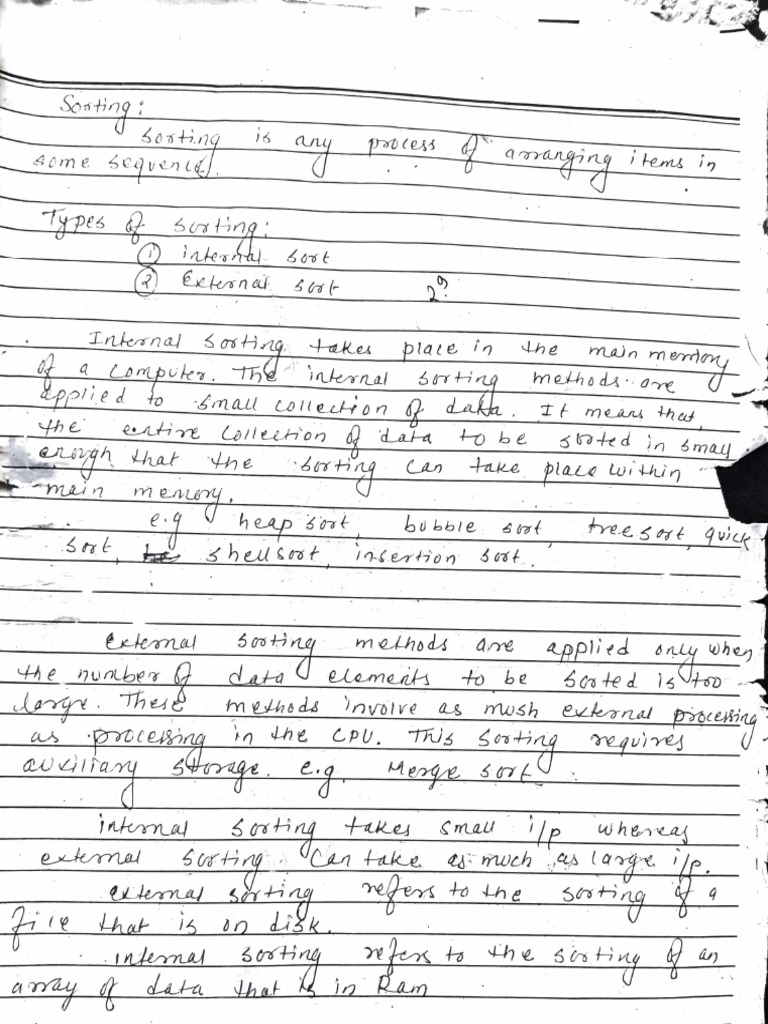 Sorting:
sorting is any process of arranging items in
some sequence.
Types of sorting:
① internal sort
② External sort
Internal sorting takes place in the main memory
of a computer. The internal sorting methods are
applied to small collection of data. It means that,
the entire collection of data to be sorted in small
enough that the sorting can take place within
main memory.
e.g heap sort, bubble sort, tree sort, quick
sort, shell sort, insertion sort.
external sorting methods are applied only when
the number of data elements to be sorted is too
large. These methods involve as mush external processing
as processing in the CPU. This sorting requires
auxiliary storage. e.g. Merge sort
internal sorting takes small i/p whereas
external sorting can take as much as large i/p.
external sorting refers to the sorting of a
file that is on disk.
internal sorting refers to the sorting of an
array of data that is in Ram